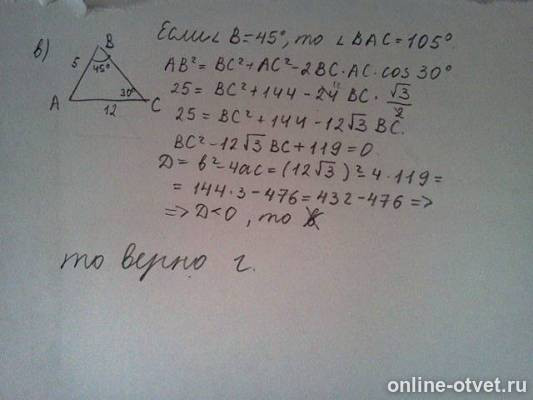 в)
B
5
45°
30°
A
12
C
Если ∠ B = 45°, то ∠ BAC = 105°.
AB² = BC² + AC² - 2BC · AC · cos 30°
25 = BC² + 144 - 24 BC · √3/2
25 = BC² + 144 - 12√3 BC.
BC² - 12√3 BC + 119 = 0.
D = b² - 4ac = (12√3)² - 4 · 119 =
= 144 · 3 - 476 = 432 - 476 =>
=> D < 0, то
то верно г.
online-otvet.ru